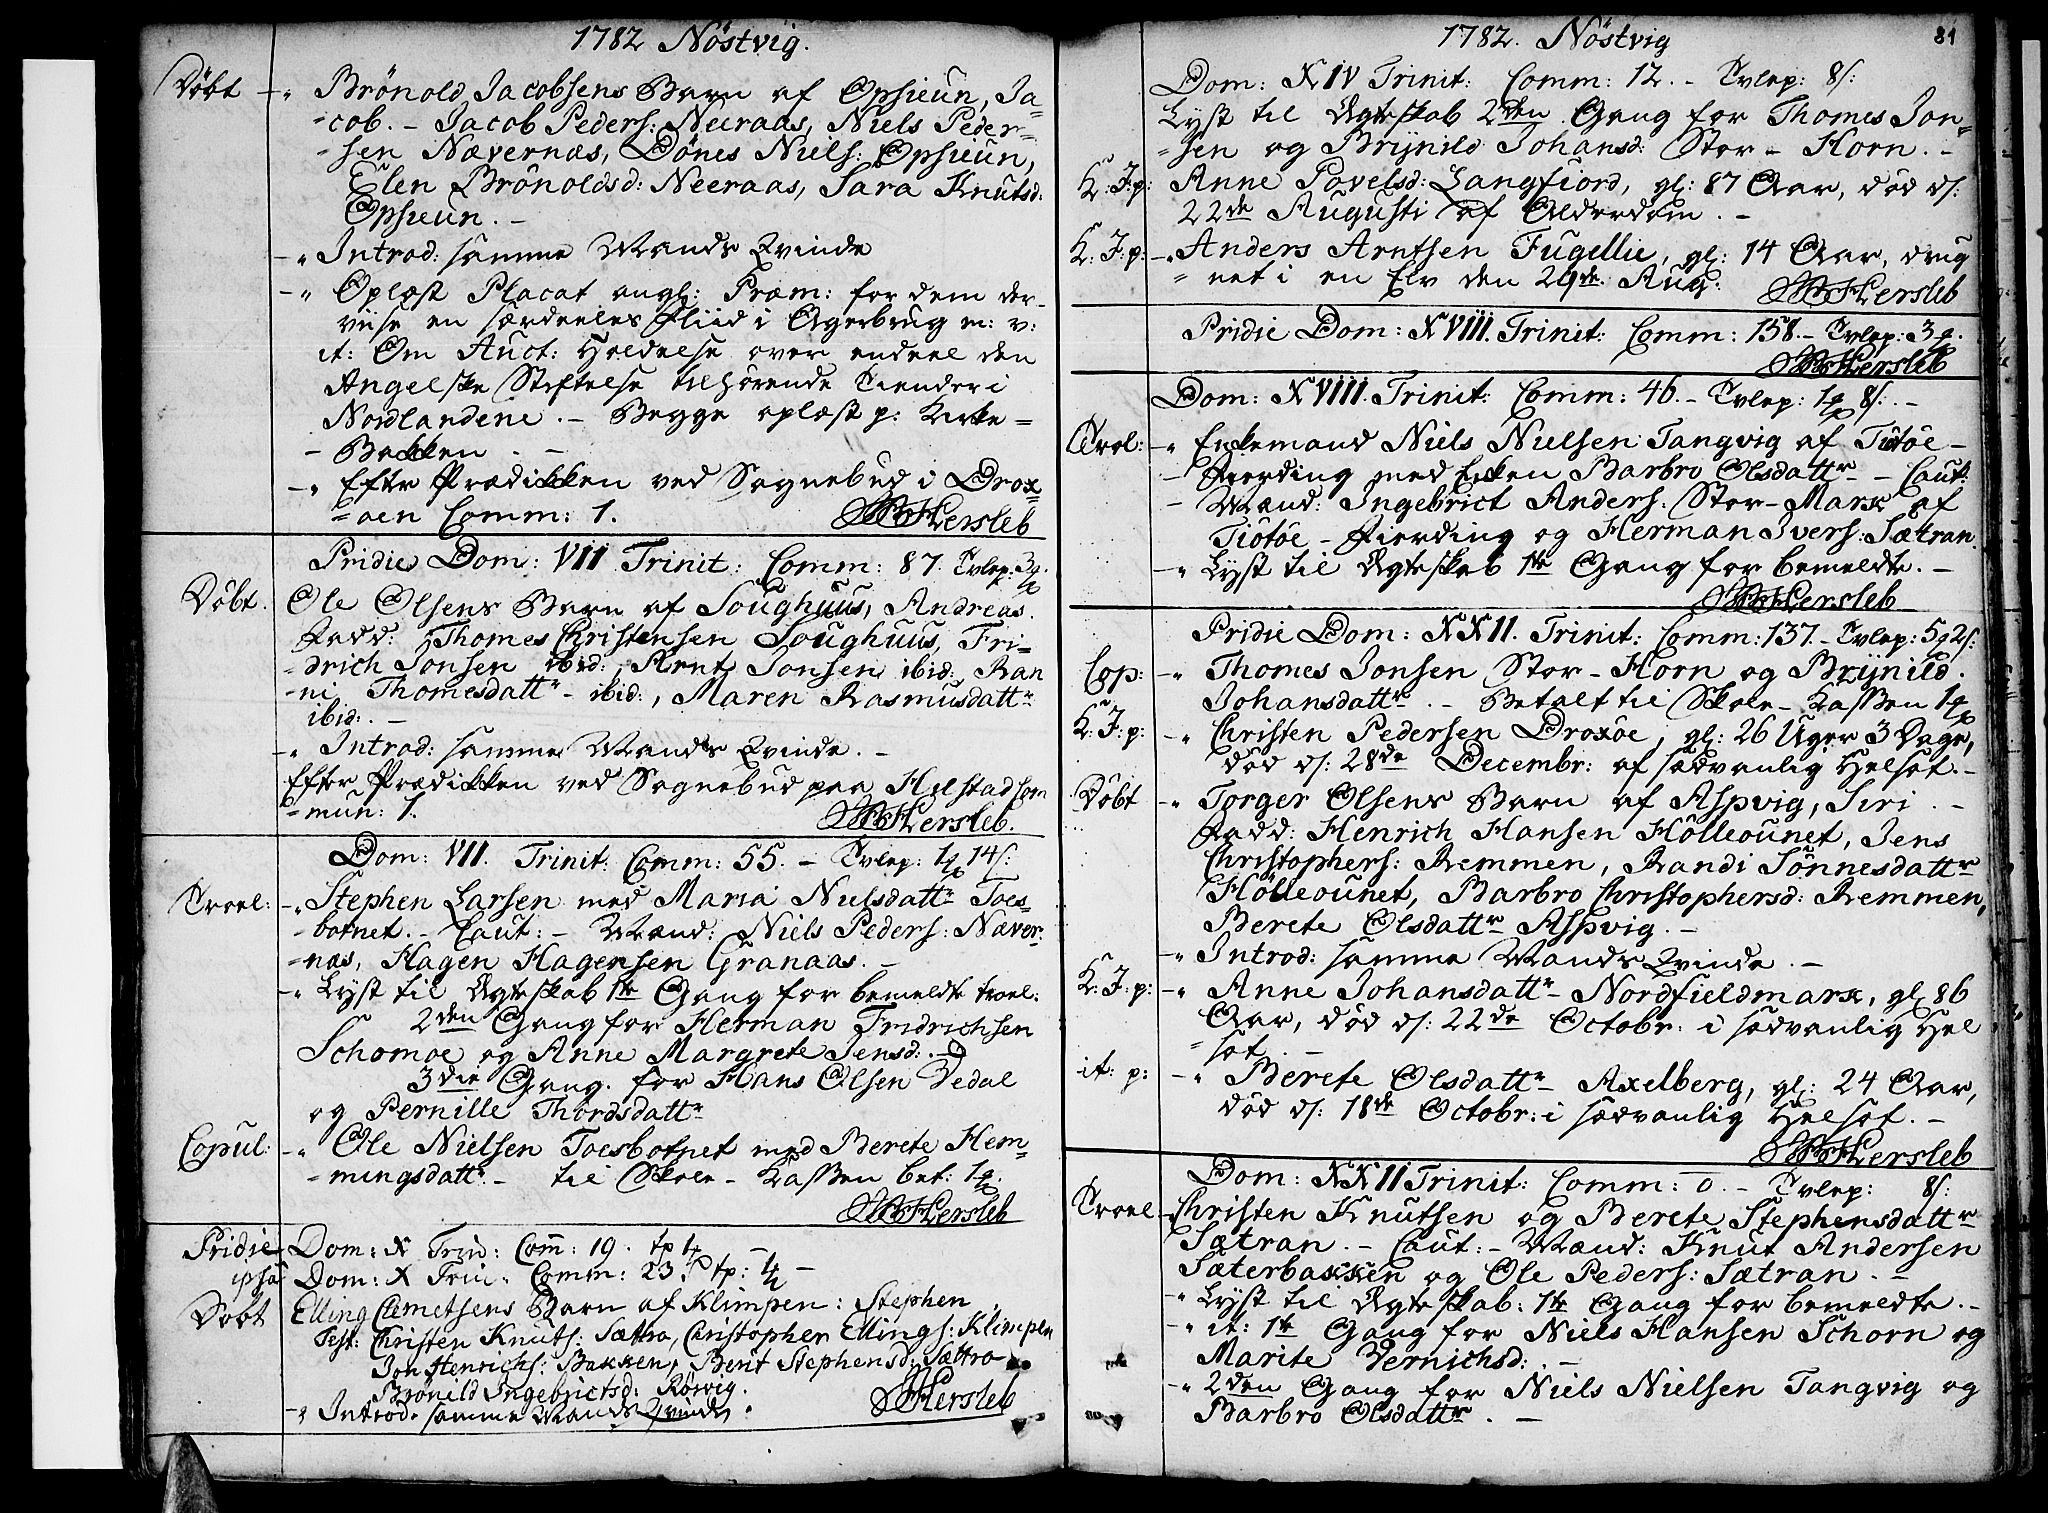 1782 Nöstvig.
Döbt -" Brönold Jacobsens Barn af Opsieun, Ja=
=cob. - Jacob Peders: Neeraas, Niels Peder=
=sen Nævernæs, Dönes Niels: Opsieun,
Elen Brönoldsd: Neeraas, Sara Knutsd:
Opsieun. -
-" Introd: samme Mands Qvinde
-" Oplæst Placat angl: Præm: for dem der
viise en særdeeles Fliid i Agerbrug m: v:
it: Om Auct: Holdelse over endeel den
Angelske Stiftelse tilhörende Tiender i
Nordlandene. - Begge oplæst p: Kirke=
- Bakken. -
-" Eftr Prædikken ved Sognebud i Drox=
=öen Comm: 1. Hersleb
Pridie Dom: VII Trinit: Comm: 87. Tvlep: 3
Döbt. Ole Olsens Barn af Soughuus, Andreas.
Fadd: Thomes Christensen Soughuus, Fri=
=drich Jonsen ibid:, Arnt Jonsen ibid:, Ran
=ni Thomesdattr - ibid:, Maren Rasmusdattr
ibid:. -
-" Introd: samme Mands Qvinde. -
Efter Prædikken ved Sognebud paa Helstad Com
=mun: 1. Hersleb.
Dom: VII. Trinit: Comm: 55. - Tvlep: 1 14s:
Troel: -" Stephen Larsen med Maria Nielsdattr Toes=
=botnet. - Caut: - Mænd: Niels Peders: Næver=
=næs, Hagen Hagensen Granaas. -
-" Lyst til Ægteskab 1te Gang for bemeldte troel:
2den Gang for Herman Fridrichsen
Schomoe og Anne Margrete Jensd:. -
3die Gang. for Hans Olsen Vedal
og Pernille Thordsdattr
Copul: -" Ole Nielsen Toesbotnet med Berete Hem=
=mingsdattr. - til Skole - Kassen bet: 1
Hersleb
Pridie Dom: X Trin: Com̄: 19. tp
ipsa Dom: X Trin: Comm: 23. tp: -
Döbt Elling Clemetsens Barn af Klimpen: Stephen
Test: Christen Knuts: Sættra, Christopher Ellings: Klimpen
Jon Henrichs: Bakken, Berit Stephensd: Sættra
Brönild Ingebrictsd: Rörvig.
-" Introd: samme Mands Qvinde.
Hersleb
1782. Nöstvig 81
Dom: XIV Trinit: Comm: 12. - Tvlep: 8s:
Lyst til Ægteskab 2den Gang for Thomes Jon=
=sen og Brijnild Johansd: Stor - Horn. -
K: J: p: Anne Povelsd: Langfiord, gl: 87 Aar, död d:
22de Augusti af Alderdom. -
K: J: p: -" Anders Arntsen Fugellie, gl: 14 Aar, drug
=net i en Elv den 29de Aug:
Hersleb
Pridie Dom: XVIII. Trinit: Comm: 158. - Tvlep: 3
Hersleb
Dom: XVIII. Trinit: Comm: 46. - Tvlep: 1 8s: -
Trol: -" Enkemand Niels Nielsen Tangvig af Tiötöe -
- Fierding med Enken Barbro Olsdattr - Caut:
- Mænd: Ingebrict Anders: Stor - Mark af
Tiötöe - Fierding og Herman Ivers: Sætran.
-" Lyst til Ægteskab 1te Gang for bemeldte. -
Hersleb
Pridie Dom: XXII. Trinit: Comm: 137. - Tvlep: 5 2s:
Cop: -" Thomes Jonsen Stor - Horn og Brijnild
Johansdattr. - Betalt til Skole - Kassen 1
K: J: p: -" Christen Pedersen Droxöe, gl: 26 Uger 3 Dage,
död d: 28de Decembr: af sædvanlig Helsot. -
Döbt -" Torger Olsens Barn af Aspvig, Siri. -
Fadd: Henrich Hansen Hölleounet, Jens
Christophers: Remmen, Randi Sönnesdattr
Hölleounet, Barbro Christophersd: Remmen,
Berete Olsdattr Aspvig. -
-" Introd: samme Mands Qvinde. -
K: J: p: -" Anne Johansdattr - Nordfieldmark, gl: 86
Aar, död d: 22de Octobr: i sædvanlig Hel
=sot. -
it: p: -" Berete Olsdattr - Axelberg, gl: 24 Aar,
död d: 18de Octobr: i sædvanlig Helsot. -
Hersleb
Dom: XXII Trinit: Comm: 0. - Tvlep: 8s:
Troel - Christen Knutsen og Berete Stephensdattr
Sætran. - Caut: - Mænd: Knut Andersen
Sæterbakken og Ole Peders: Sætran. -
-" Lyst til Ægteskab: 1te Gang for bemeldte. -
-" it: 1te Gang for Niels Hansen Schorn og
Marite Vernichsd:. -
-" 2den Gang for Niels Nielsen Tangvig og
Barbro Olsdattr. -